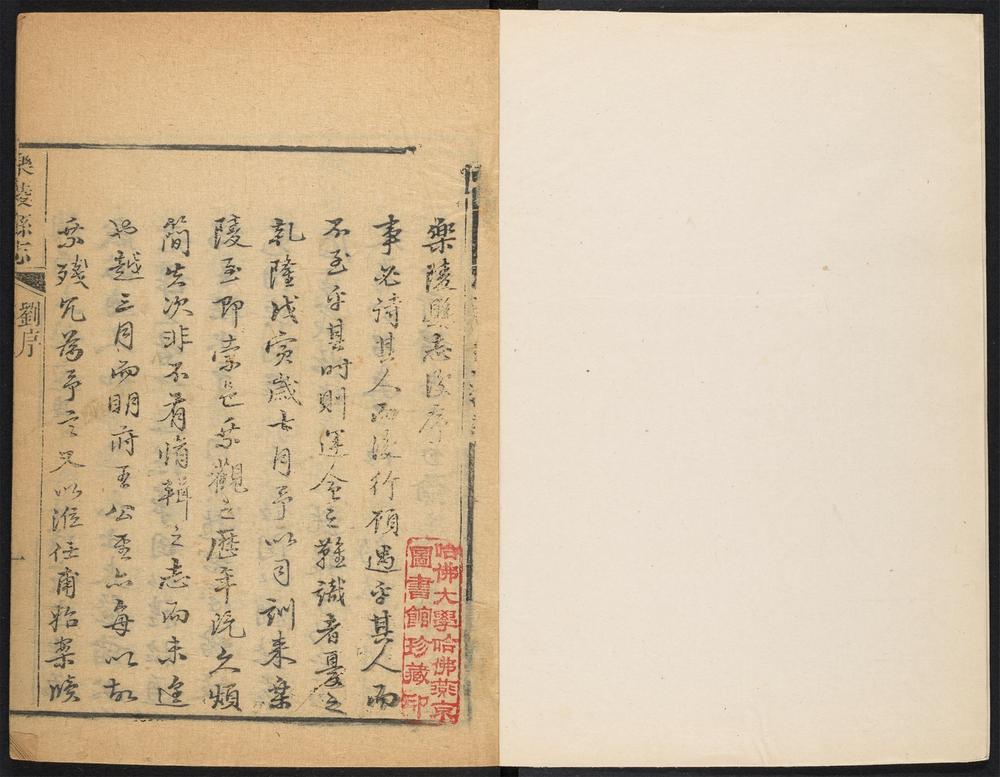 樂陵縣志後序
事必待其人而後行顧遇乎其人而
不至乎其時則運會之難識者憂之
乾隆戊寅歲七月予以司訓來樂
陵至即索邑乘觀之歷年既久頗
簡失次非不有脩輯之志而未逮
也越三月而明府王公至亦每以故
乘殘冗為予言 以涖任甫始案牘
樂陵縣志
劉序
一
哈佛大學哈佛燕京
圖書館珍藏印